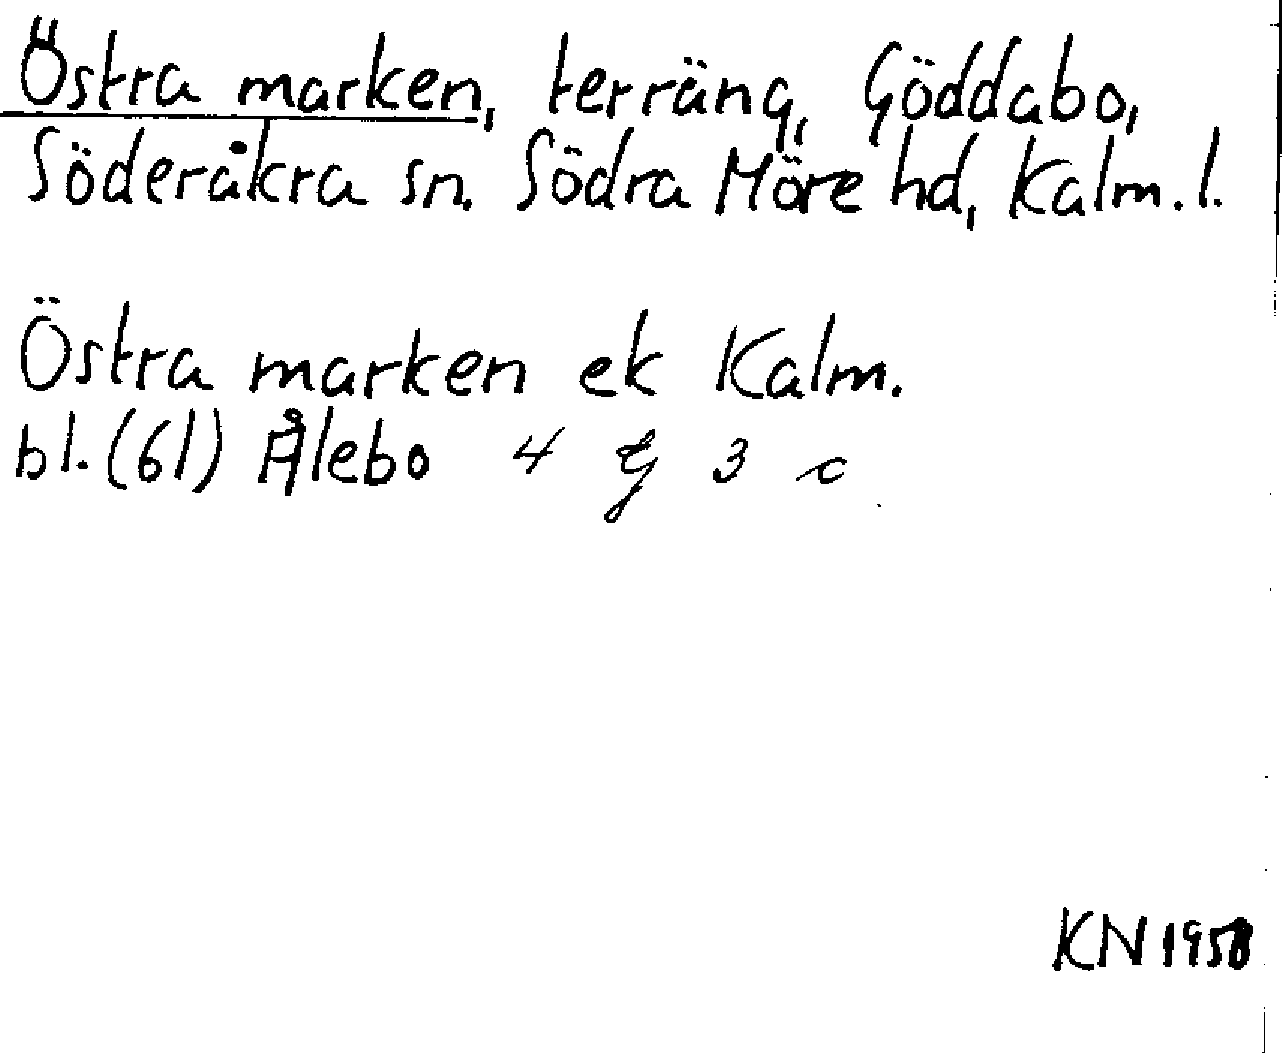 Östra marken, terräng, Göddabo,
Söderåkra sn. Södra Möre hd, Kalm. l.
Östra marken ek Kalm.
bl. (61) Ålebo 4 G 3 c
KN 1958